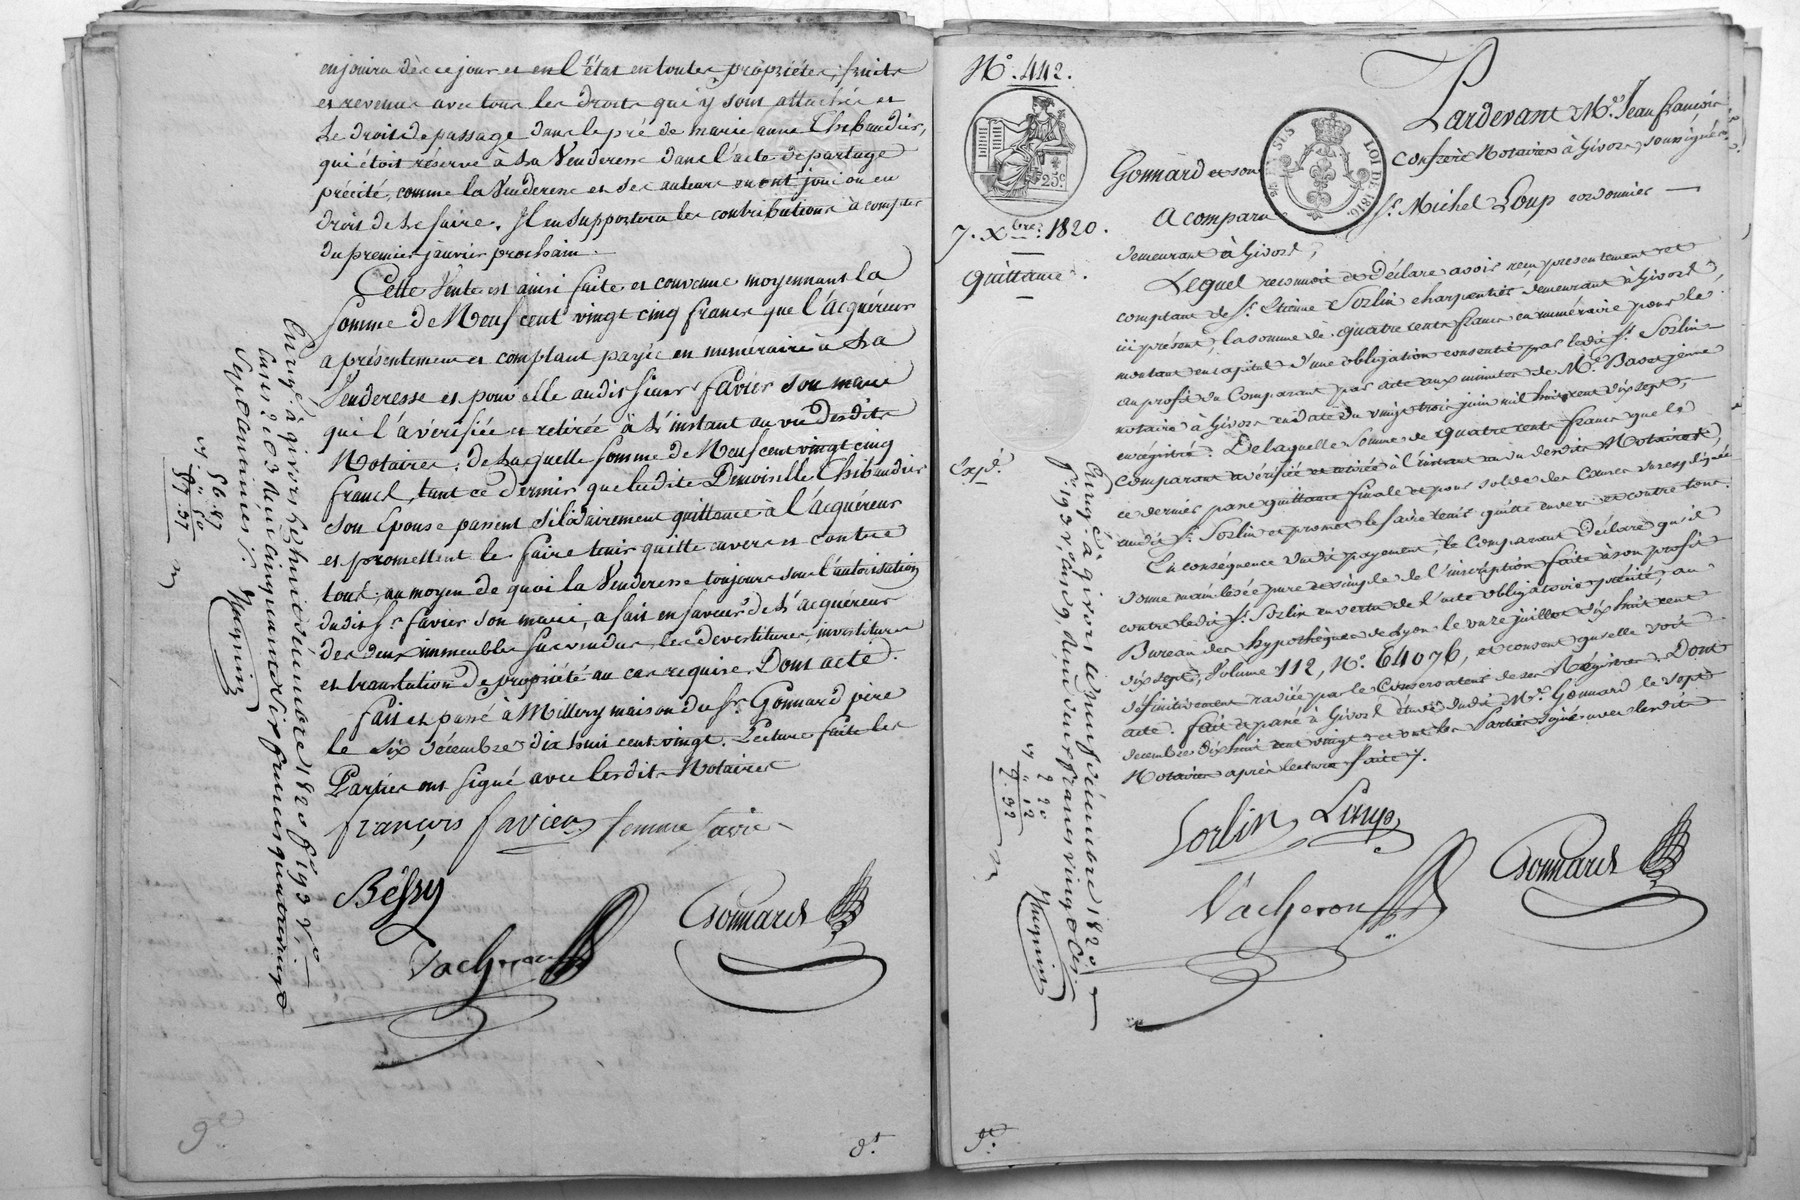 en jouira dès ce jour et en l'état en toutes propriétés, fruits
et revenus avec tous les droits qui y sont attachés et
le droit de passage dans le pré de marie anne Thibaudier,
qui étoit réservé à la Venderesse dans l'acte de partage
précité, comme la Venderesse et ses auteurs en ont joui ou eu
droit de le faire. Il en supportera les contributions à compter
du premier janvier prochain.
Cette Vente est ainsi faite et convenue moyennant la
somme de Neuf cent vingt cinq francs que l'acquéreur
a présentement et comptant payée en numéraire à la
Venderesse et pour elle audit sieur favier son mari
qui l'a vérifiée et retirée à l'instant au vu desdits
Notaires, de laquelle somme de Neuf cent vingt cinq
francs, tant ce dernier que ladite Demoiselle Thibaudier
son Epouse passent solidairement quittance à l'acquéreur
et promettent le faire tenir quitte envers et contre
tous, au moyen de quoi la Venderesse toujours sous l'autorisation
dudit Sr. favier son mari, a fait en faveur de l'acquéreur
des deux immeubles sus vendus, les devestitures, investitures
et translation de propriété au cas requise. Dont acte.
fait et passé à Millery maison du Sr. Gonnard père
le six décembre dix huit cent vingt. Lecture faite les
Parties ont signé avec lesdits Notaires
françois favier femme favier
Béssy
Vacheron Gonnard
Enregé. à givors le huit décembre 1820 fo. 193 Vo.
cases 2 et 3 Reçu cinquante six francs quatre vingt
Sept centimes
50.87
5.10
Huguin
9e
8t
No. 442.
25c
7. Xbre. 1820.
Quittance.
Expé.
Pardevant Me. Jean françois
Gonnard et son confrère Notaires à Givors, soussignés
LOI DE 1816.
A comparu Sr. Michel Loup cordonnier
demeurant à Givors,
Lequel reconnoit et Déclare avoir reçu présentement et
comptant de Sr. Etienne Sorlin charpentier demeurant à Givors,
ici présent, la somme de quatre cents francs en numéraire pour le
montant en capital d'une obligation consentie par ledit Sr. Sorlin
au profit du Comparant par acte aux minutes de Me. Badet jeune
notaire à Givors en date du vingt trois juin mil huit cent dix sept,
enrégistré. De laquelle somme de quatre cents francs que le
comparant a vérifiée et retirée à l'instant au vu desdits Notaires,
ce dernier passe quittance finale et pour solde des Causes susexpliquées
audit Sr. Sorlin et promet le faire tenir quitte envers et contre tous.
En conséquence dudit payement, le Comparant Déclare qu'il
donne main levée pure et simple de l'inscription faite à son profit
contre ledit Sr. Sorlin en vertu de l'acte obligatoire précité, au
Bureau des hypothèques de Lyon le onze juillet dix huit cent
dix sept, Volume 112, No. 64076, et consent qu'elle soit
définitivement radiée par le Conservateur de ses Régistres. Dont
acte. fait et passé à Givors étude dudit Me. Gonnard le sept
décembre dix huit cent vingt et ont les Parties signé avec lesdits
Notaires après lecture faite.
Sorlin Loup
Vacheron Gonnard
Enregé. à givors le neuf décembre 1820
fo. 193 Vo. case 9, Reçu deux francs vingt c.
2 20
Huguin
9e.